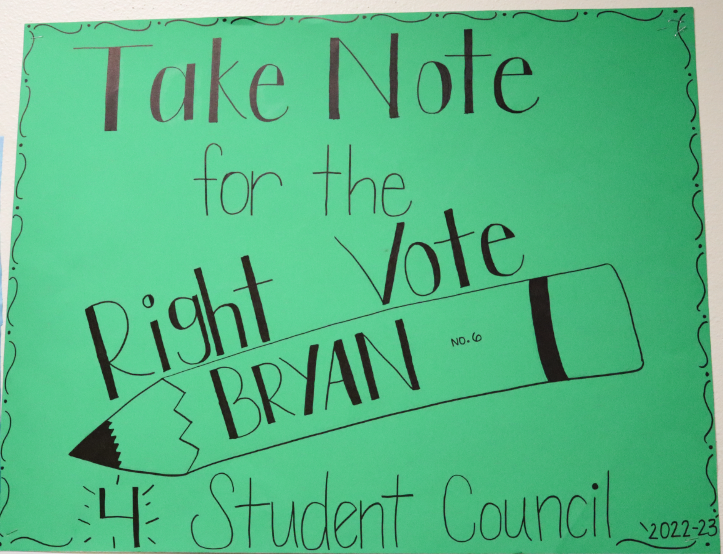 Take Note
for the
Right Vote
BRYAN NO.6
4 Student Council
2022-23